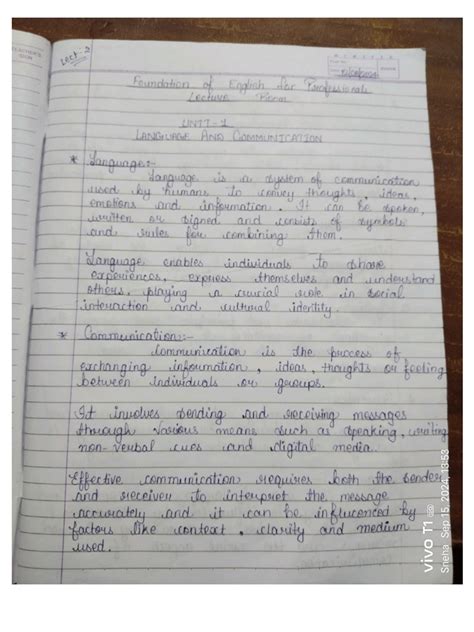 TEACHER'S
SIGN
Lect-2
Foundation of English for Professionals
Lecture
UNIT-1
LANGUAGE AND COMMUNICATION
* Language:-
Language is a system of communication
used by humans to convey thoughts, ideas,
emotions and information. It can be spoken,
written or signed and consists of symbols
and rules for combining them.
Language enables individuals to share
experiences, express themselves and understand
others, playing a crucial role in social
interaction and cultural identity.
* Communication:-
Communication is the process of
exchanging information, ideas, thoughts or feeling
between individuals or groups.
It involves sending and receiving messages
through various means such as speaking, writing
non-verbal cues and digital media.
Effective communication requires both the sender
and receiver to interpret the message
accurately and it can be influenced by
factors like context, clarity and medium
used.
vivo T1 5G
Sneha Sep 15, 2024, 13:53